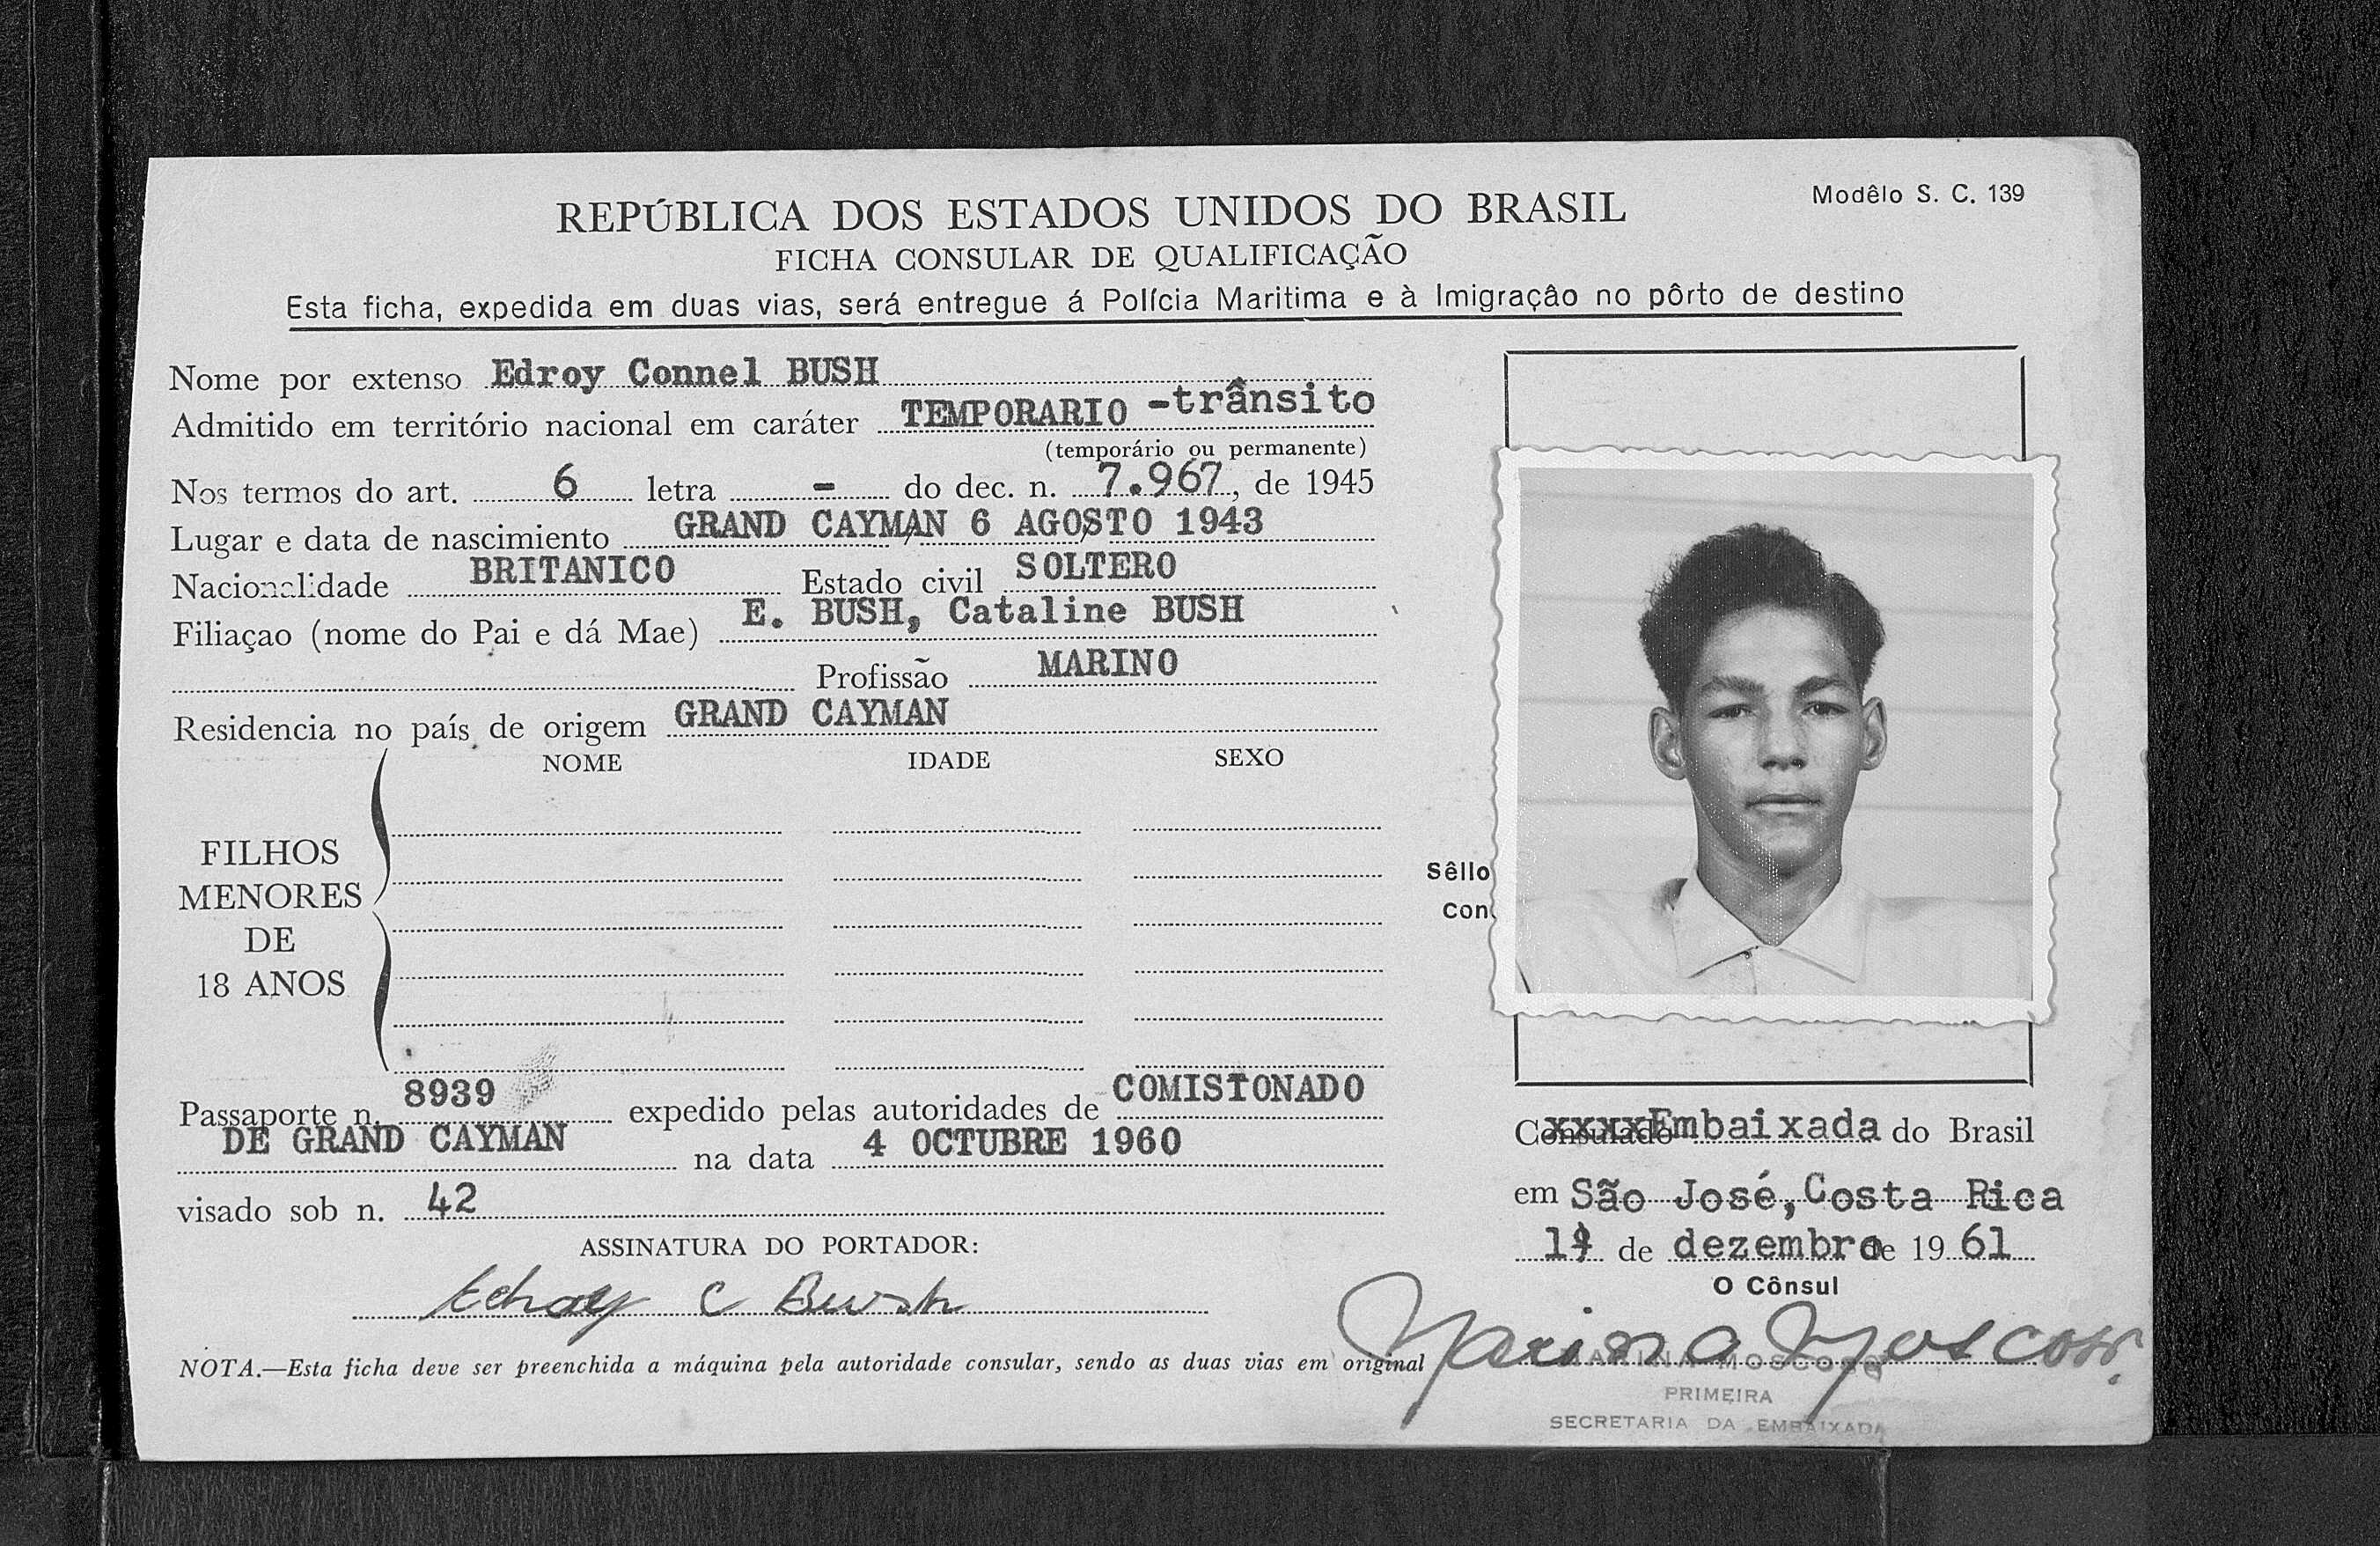 Modêlo S. C. 139
REPÚBLICA DOS ESTADOS UNIDOS DO BRASIL
FICHA CONSULAR DE QUALIFICAÇÃO
Esta ficha, expedida em duas vias, será entregue á Polícia Maritima e à Imigração no pôrto de destino
Nome por extenso Edroy Connel BUSH
Admitido em território nacional em caráter TEMPORARIO -trânsito
(temporário ou permanente)
Nos termos do art. 6 letra - do dec. n. 7.967, de 1945
Lugar e data de nascimiento GRAND CAYMAN 6 AGOSTO 1943
Nacionalidade BRITANICO Estado civil SOLTERO
Filiaçao (nome do Pai e dá Mae) E. BUSH, Cataline BUSH
Profissão MARINO
Residencia no país de origem GRAND CAYMAN
NOME IDADE SEXO
FILHOS
MENORES
DE
18 ANOS
Sêllo
Con
Passaporte n. 8939 expedido pelas autoridades de COMISIONADO
DE GRAND CAYMAN na data 4 OCTUBRE 1960
visado sob n. 42
ASSINATURA DO PORTADOR:
Edroy C Bush
NOTA.—Esta ficha deve ser preenchida a máquina pela autoridade consular, sendo as duas vias em original
Consulado xxxxEmbaixada do Brasil
em São José, Costa Rica
de dezembro de 1961
O Cônsul
Marina Moscoso
MARINA MOSCOSO
PRIMEIRA
SECRETARIA DA EMBAIXADA